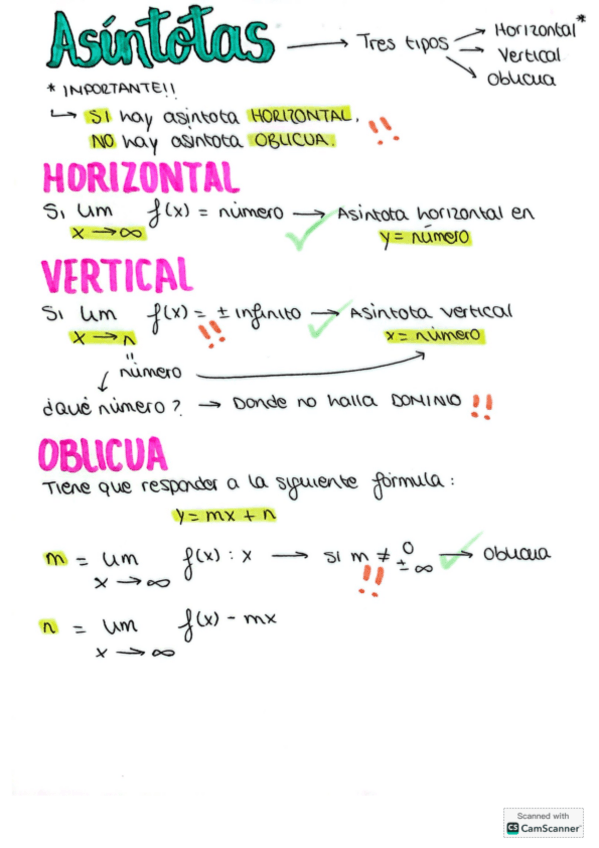 Asíntotas → Tres tipos → Horizontal*
→ Vertical
→ Oblicua
* IMPORTANTE!!
↳ SI hay asíntota HORIZONTAL,
NO hay asíntota OBLICUA. !!
HORIZONTAL
Si lim f(x) = número → Asíntota horizontal en
x → ∞ y = número
VERTICAL
Si lim f(x) = ± infinito → Asíntota vertical
x → n !! x = número
" número
¿Qué número? → Donde no halla DOMINIO !!
OBLICUA
Tiene que responder a la siguiente fórmula:
y = mx + n
m = lim f(x) : x → si m ≠ 0 ± ∞ → Oblicua
x → ∞ !!
n = lim f(x) - mx
x → ∞
Scanned with
CS CamScanner